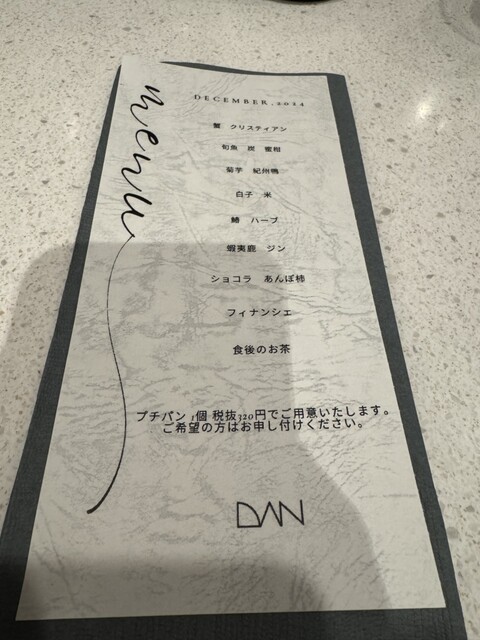 menu
DECEMBER.2024
蟹 クリスティアン
旬魚 炭 蜜柑
菊芋 紀州鴨
白子 米
鰆 ハーブ
蝦夷鹿 ジン
ショコラ あんぽ柿
フィナンシェ
食後のお茶
プチパン 1個 税抜320円でご用意いたします。
ご希望の方はお申し付けください。
DAN